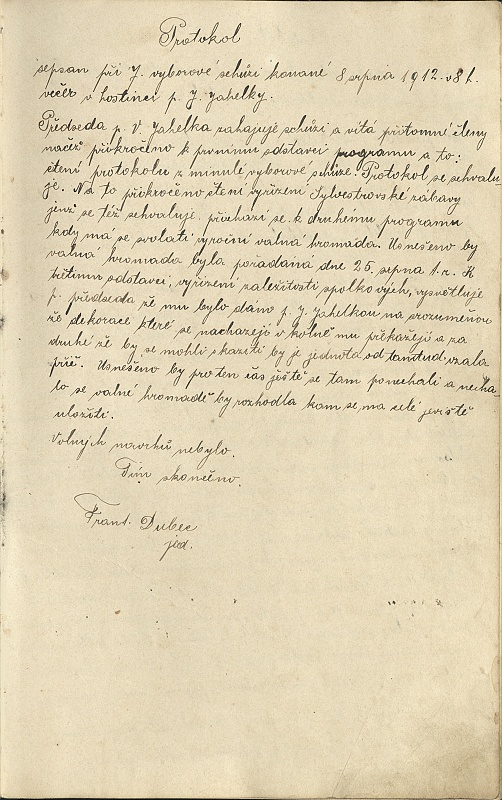 Protokol
sepsan při 7. vyborové schůzi konané 8 srpna 1912. v 8 h.
večer v hostinci p. J. Jahelky.
Předseda p. V. Jahelka zahajuje schůzi a vítá přítomné členy
načež přikročeno k prvnímu odstavci programu a to:
čtení protokolu z minulé vyborové schůze. Protokol se schvalu
je. Na to přikročeno čtení vyřízení Sylvestrovské zábavy
jenž se též schvaluje. přichazí se k druhému programu
kdy má se svolati vyroční valná hromada. Usnešeno by
valná hromada byla pořadaná dne 25. srpna t.r. K
třetímu odstavci, vyřízení zaležitostí spolkových, vysvětluje
p. předseda že mu bylo dáno p. J. Jahelkou na srozuměnou
že dekorace které se nachazejí v kolně mu překažejí a za
druhé že by se mohli skaziti by je jednota odtamtud vzala
pryč. Usnešeno by pro ten čas ještě se tam ponechali a necha-
lo se valné hromadě by rozhodla kam se má celé jeviště
uložiti.
Volných navrhů nebylo.
Tím skončeno.
Frant. Dubec
jed.